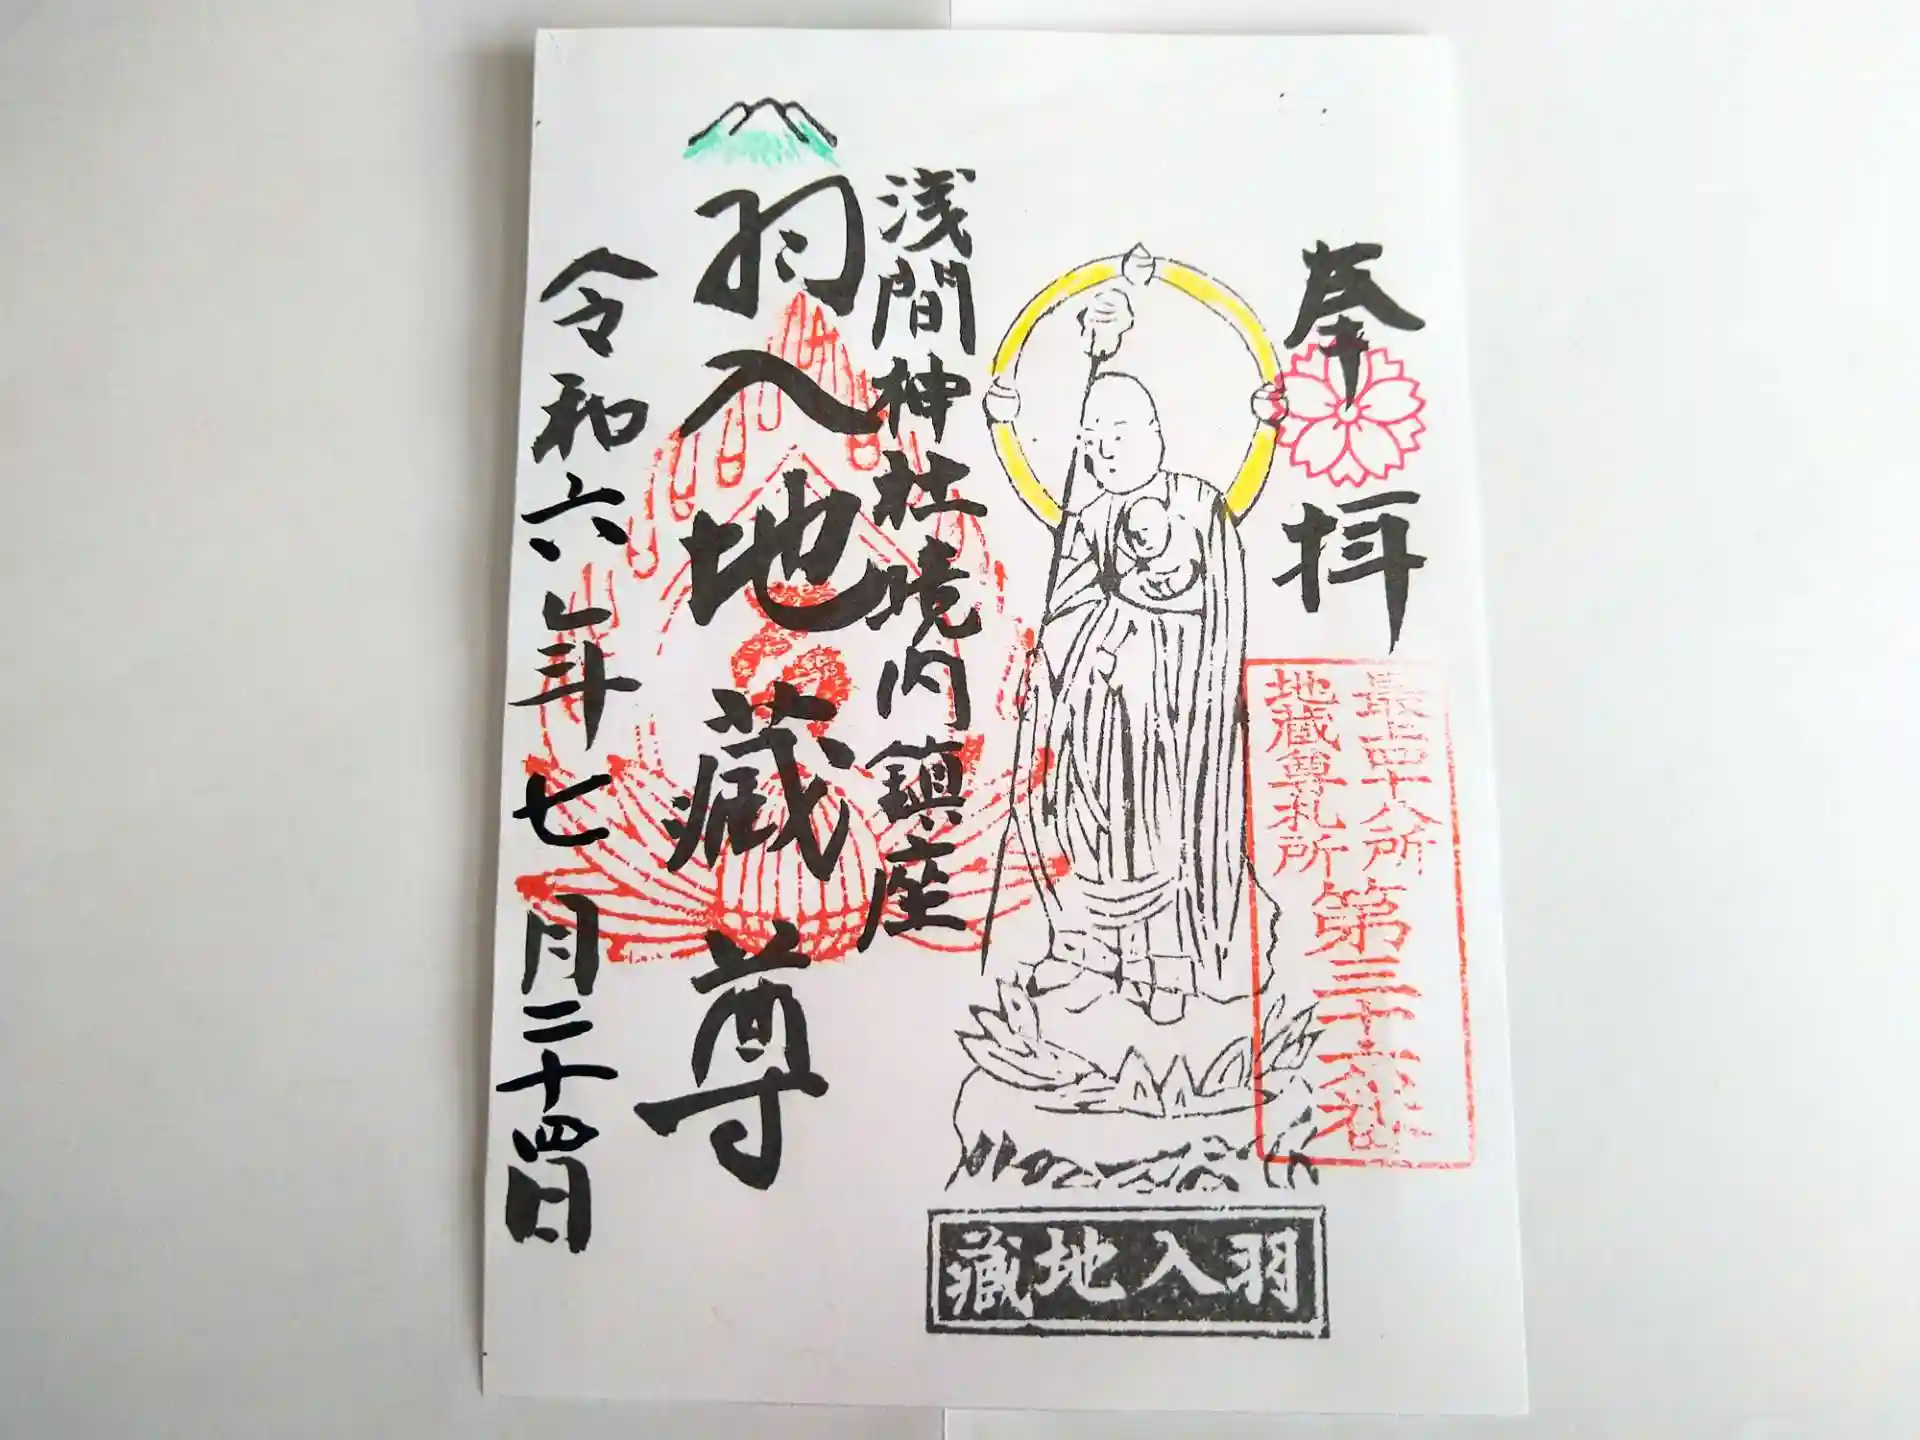 奉拝
最上四十八所
地蔵尊札所
第三十六番
浅間神社境内鎮座
羽入地蔵尊
令和六年七月二十四日
羽入地蔵